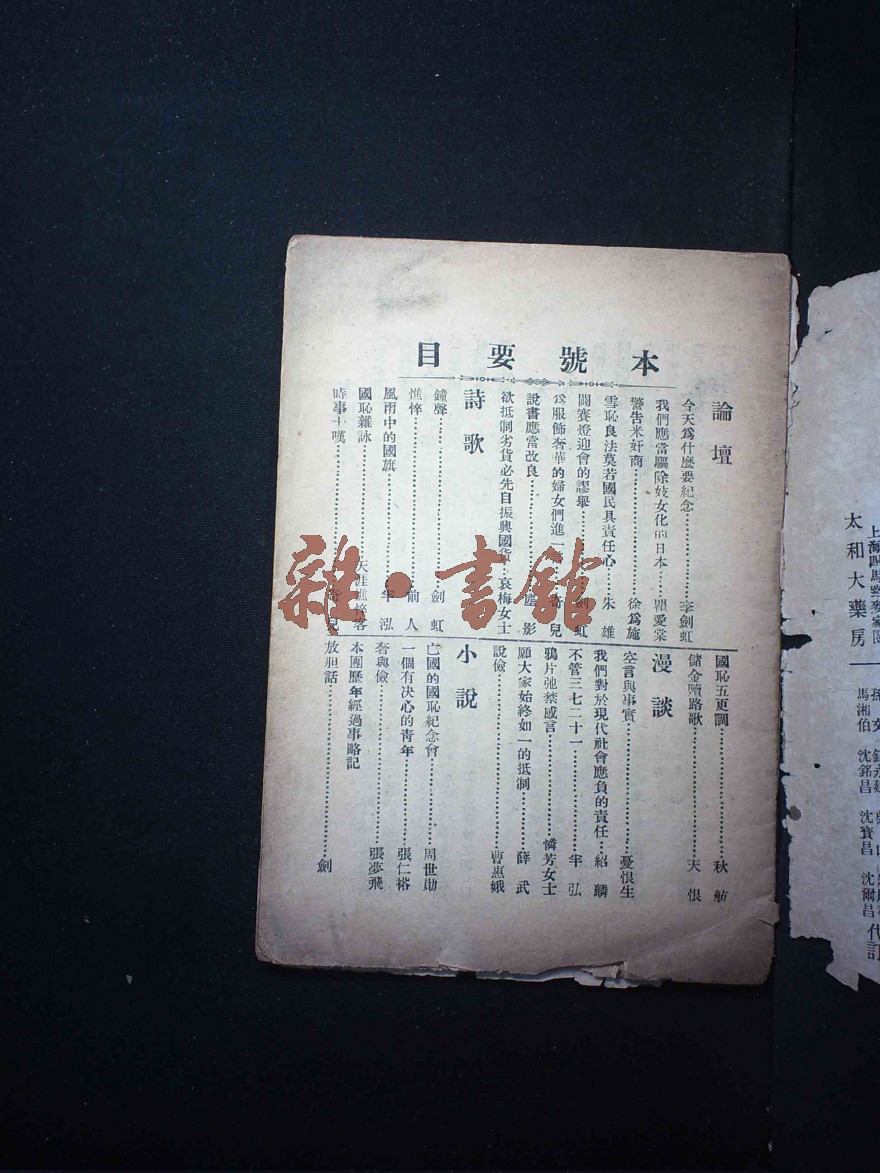 本號要目
論壇
今天爲什麼要紀念……李劍虹
我們應當驅除妓女化的日本……瞿愛棠
警告米奸商……徐爲施
雪恥良法莫若國民具責任心……朱雄
鬧賽燈迎會的謬舉……劍虹
爲服飾奢華的婦女們進一……奇兒
說書應當改良……塵影
欲抵制劣貨必先自振興國貨…哀梅女士
詩歌
鐘聲……劍虹
憔悴……俞人
風雨中的國旗……芈泓
國恥雜詠……天涯憔悴客
時事十嘆……奇兒
國恥五更調……秋舫
儲金贖路歌……天恨
漫談
空言與事實……憂恨生
我們對於現代社會應負的責任……紹麟
不管三七二十一……芈弘
鴉片弛禁感言……憐芳女士
願大家始終如一的抵制……薛武
說儉……曹惠娥
小說
亡國的國恥紀念會……周世勛
一個有决心的青年……張仁裕
奢與儉……張夢飛
本團歷年經過事略記
放胆話……劍
雜·書館
太和大藥房
馬湘伯 沈銘昌 沈寶昌 沈爾昌 代訂